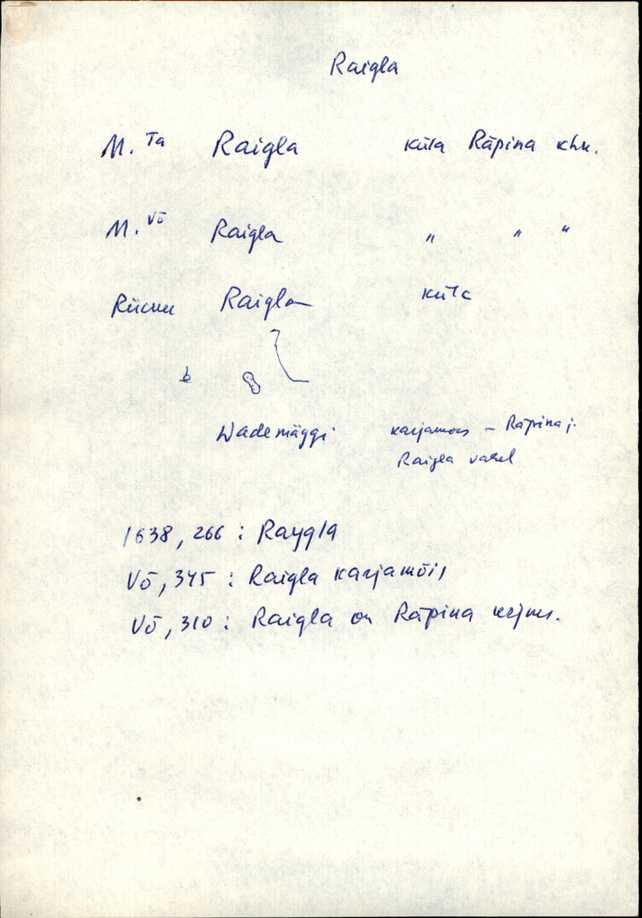 Raigla
M. Ta Raigla küla Räpina khk.
M. Võ Raigla " " "
Rücker Raigla küla
b
Wademäggi karjamõis – Räpina j.
Raigla vahel
1638, 266 : Raygla
Võ, 345 : Raigla karjamõis
Võ, 310 : Raigla on Räpina krjms.